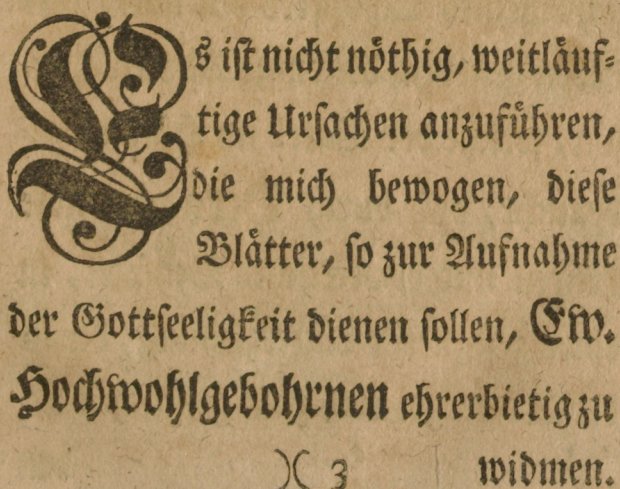 Es ist nicht nöthig, weitläuf-
tige Ursachen anzuführen,
die mich bewogen, diese
Blätter, so zur Aufnahme
der Gottseeligkeit dienen sollen, Ew.
Hochwohlgebohrnen ehrerbietig zu
)( 3 widmen.